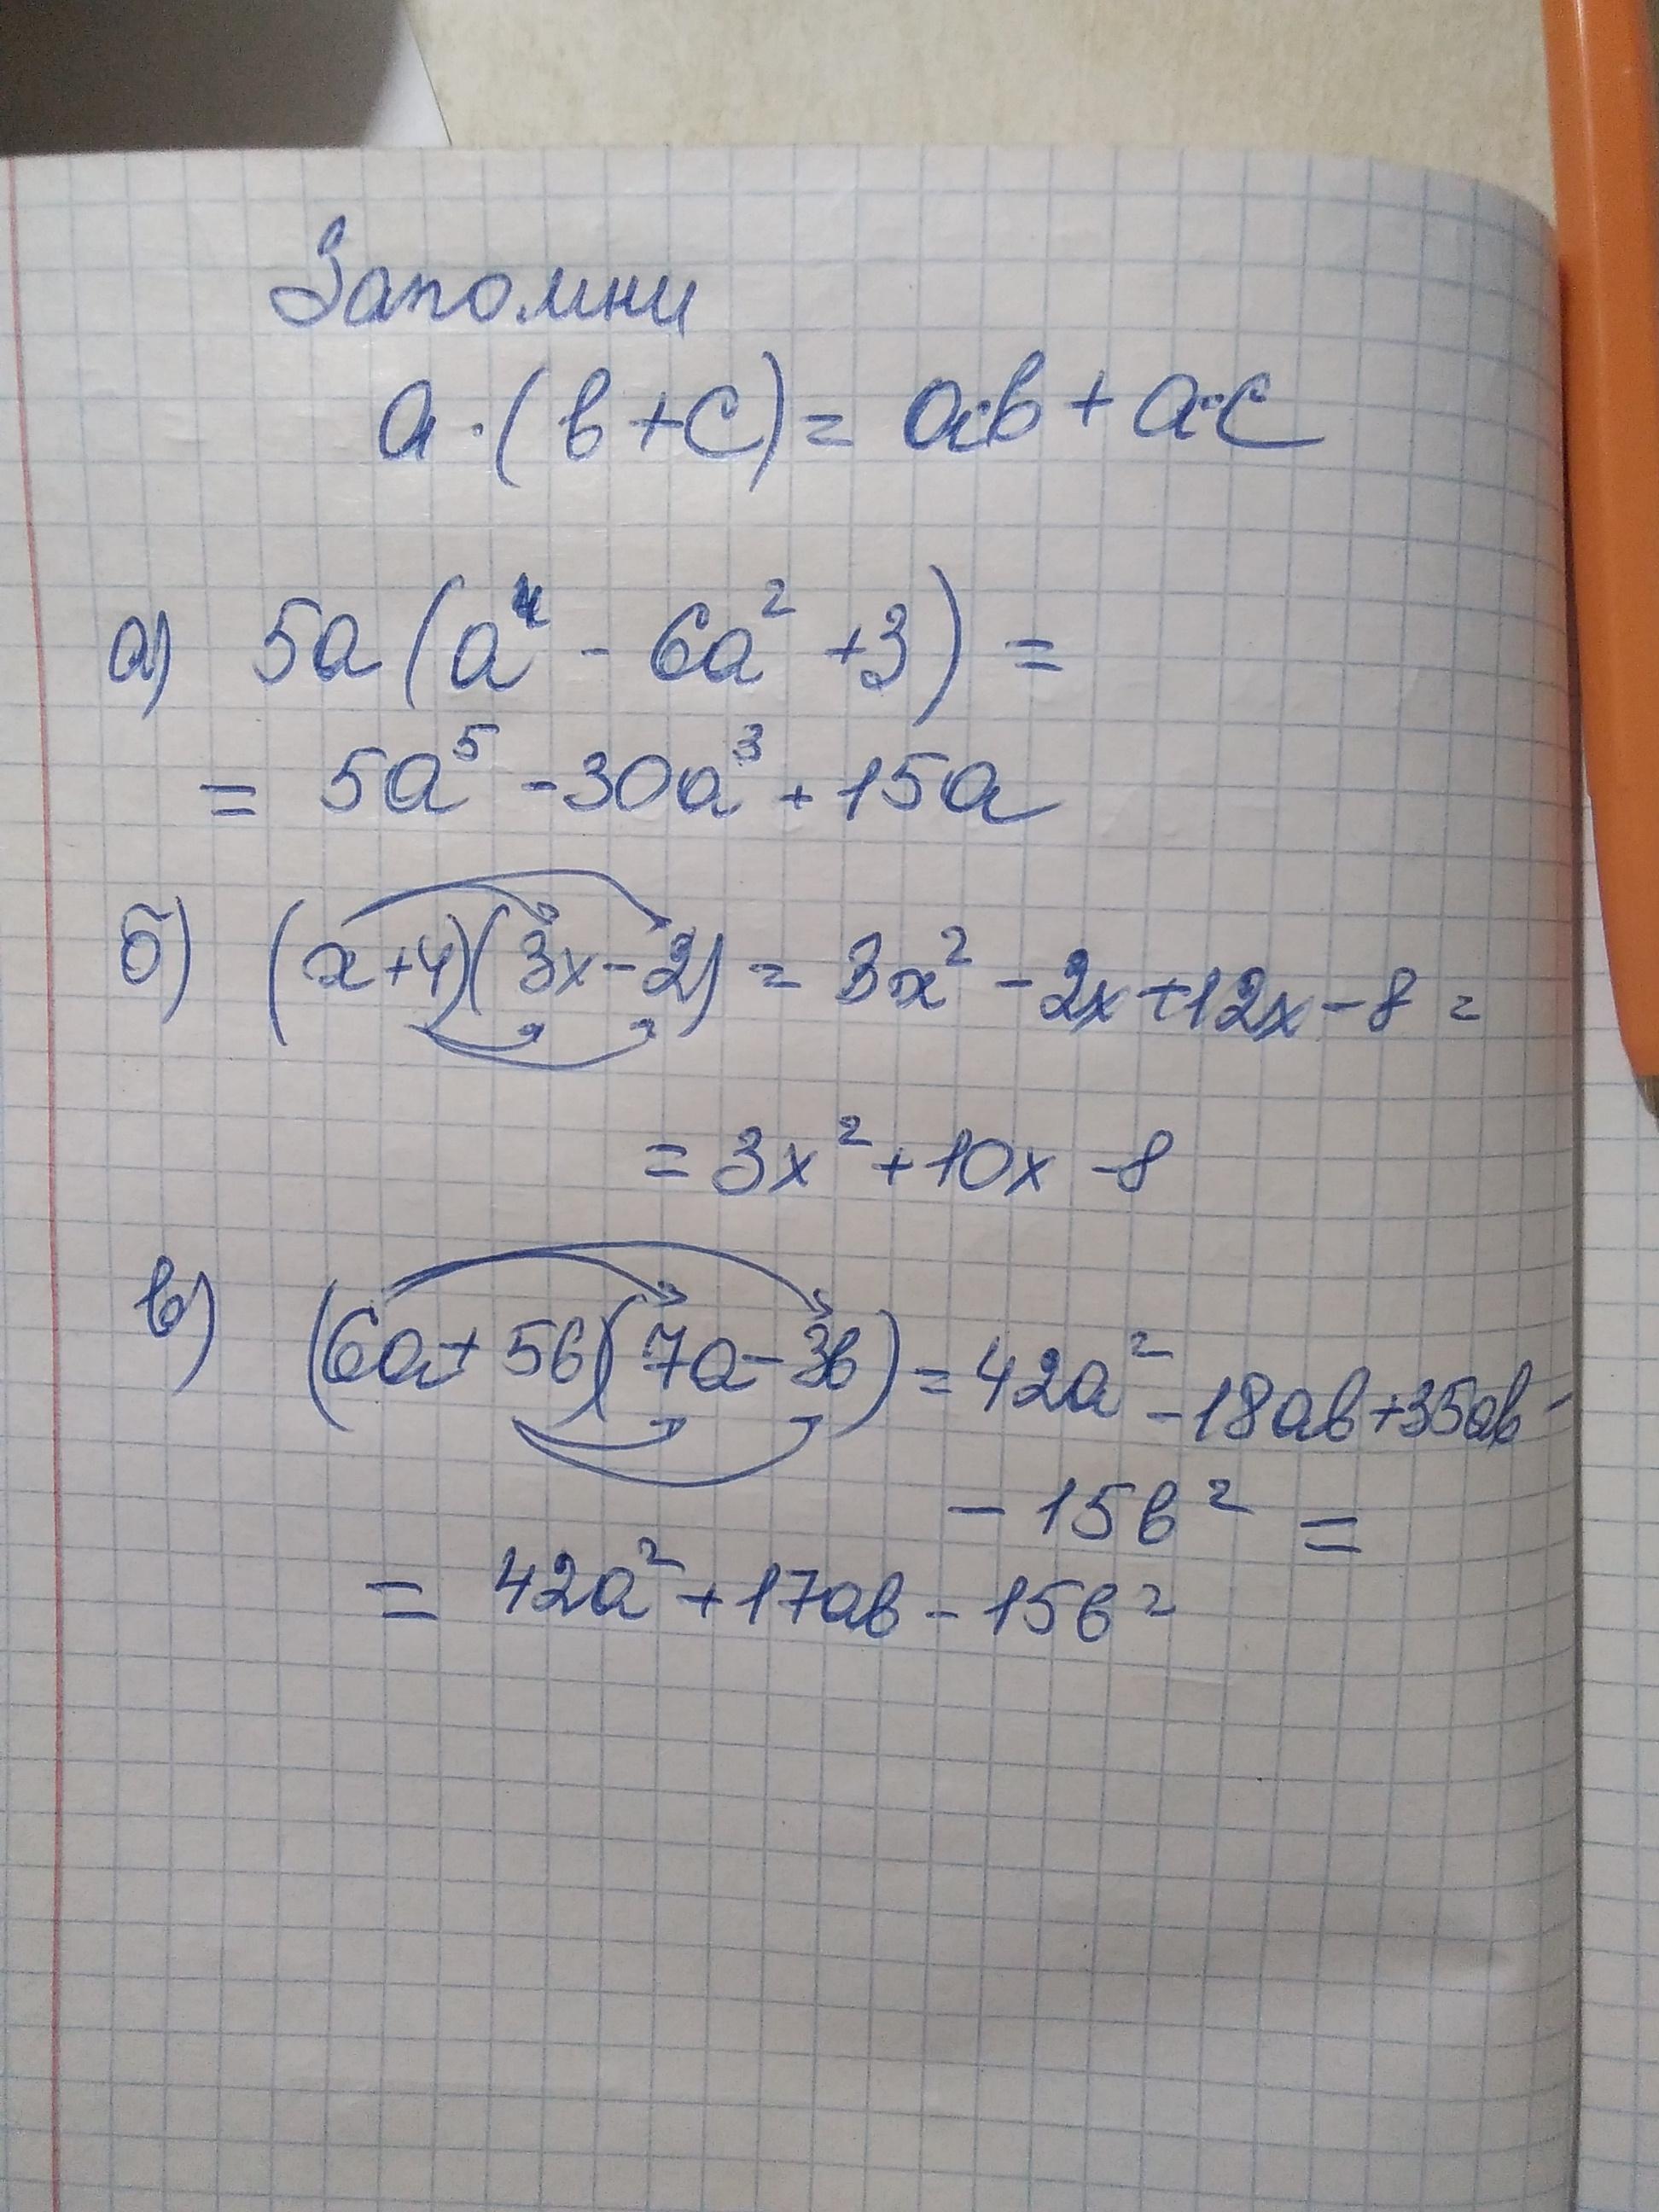 Запомни
a · (b + c) = a·b + a·c
а) 5a (a⁴ - 6a² + 3) =
= 5a⁵ - 30a³ + 15a
б) (x + 4)(3x - 2) = 3x² - 2x + 12x - 8 =
= 3x² + 10x - 8
в) (6a + 5b)(7a - 3b) = 42a² - 18ab + 35ab -
- 15b² =
= 42a² + 17ab - 15b²